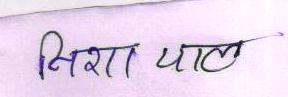 निशा पाल